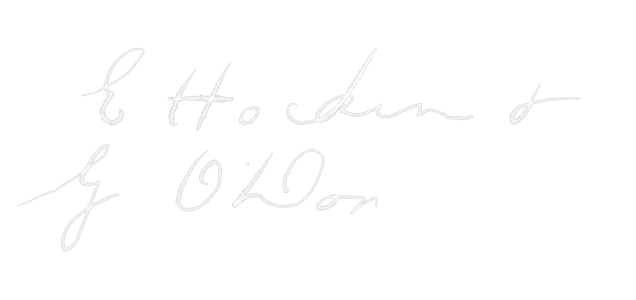 E Hocken &
G O'Don